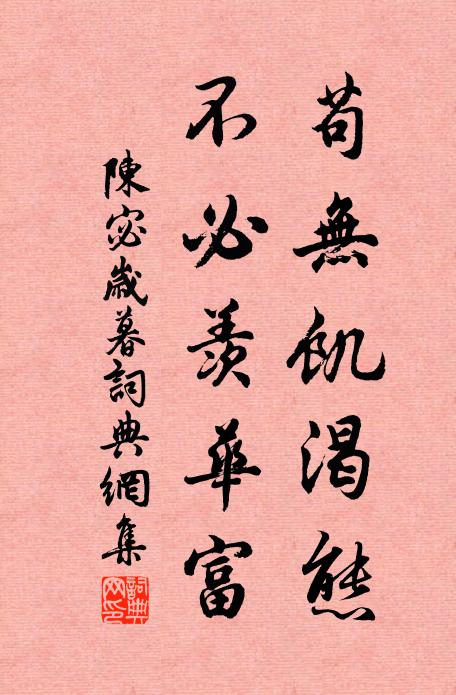 苟無飢渴態
不必羨華富
陳宓歲暮詞典網集
詞典网印